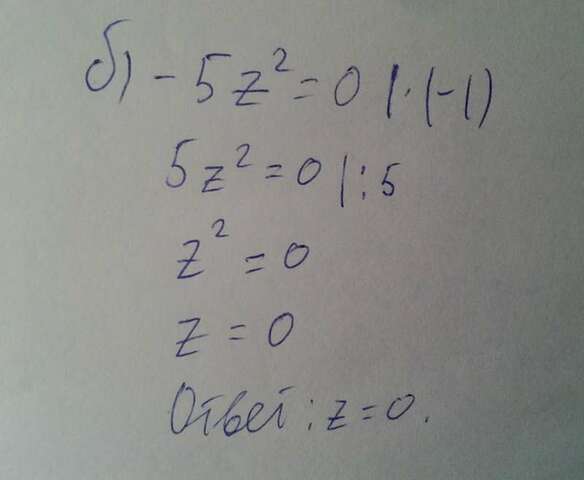 б) -5z² = 0 |·(-1)
5z² = 0 |:5
z² = 0
z = 0
Ответ: z = 0.